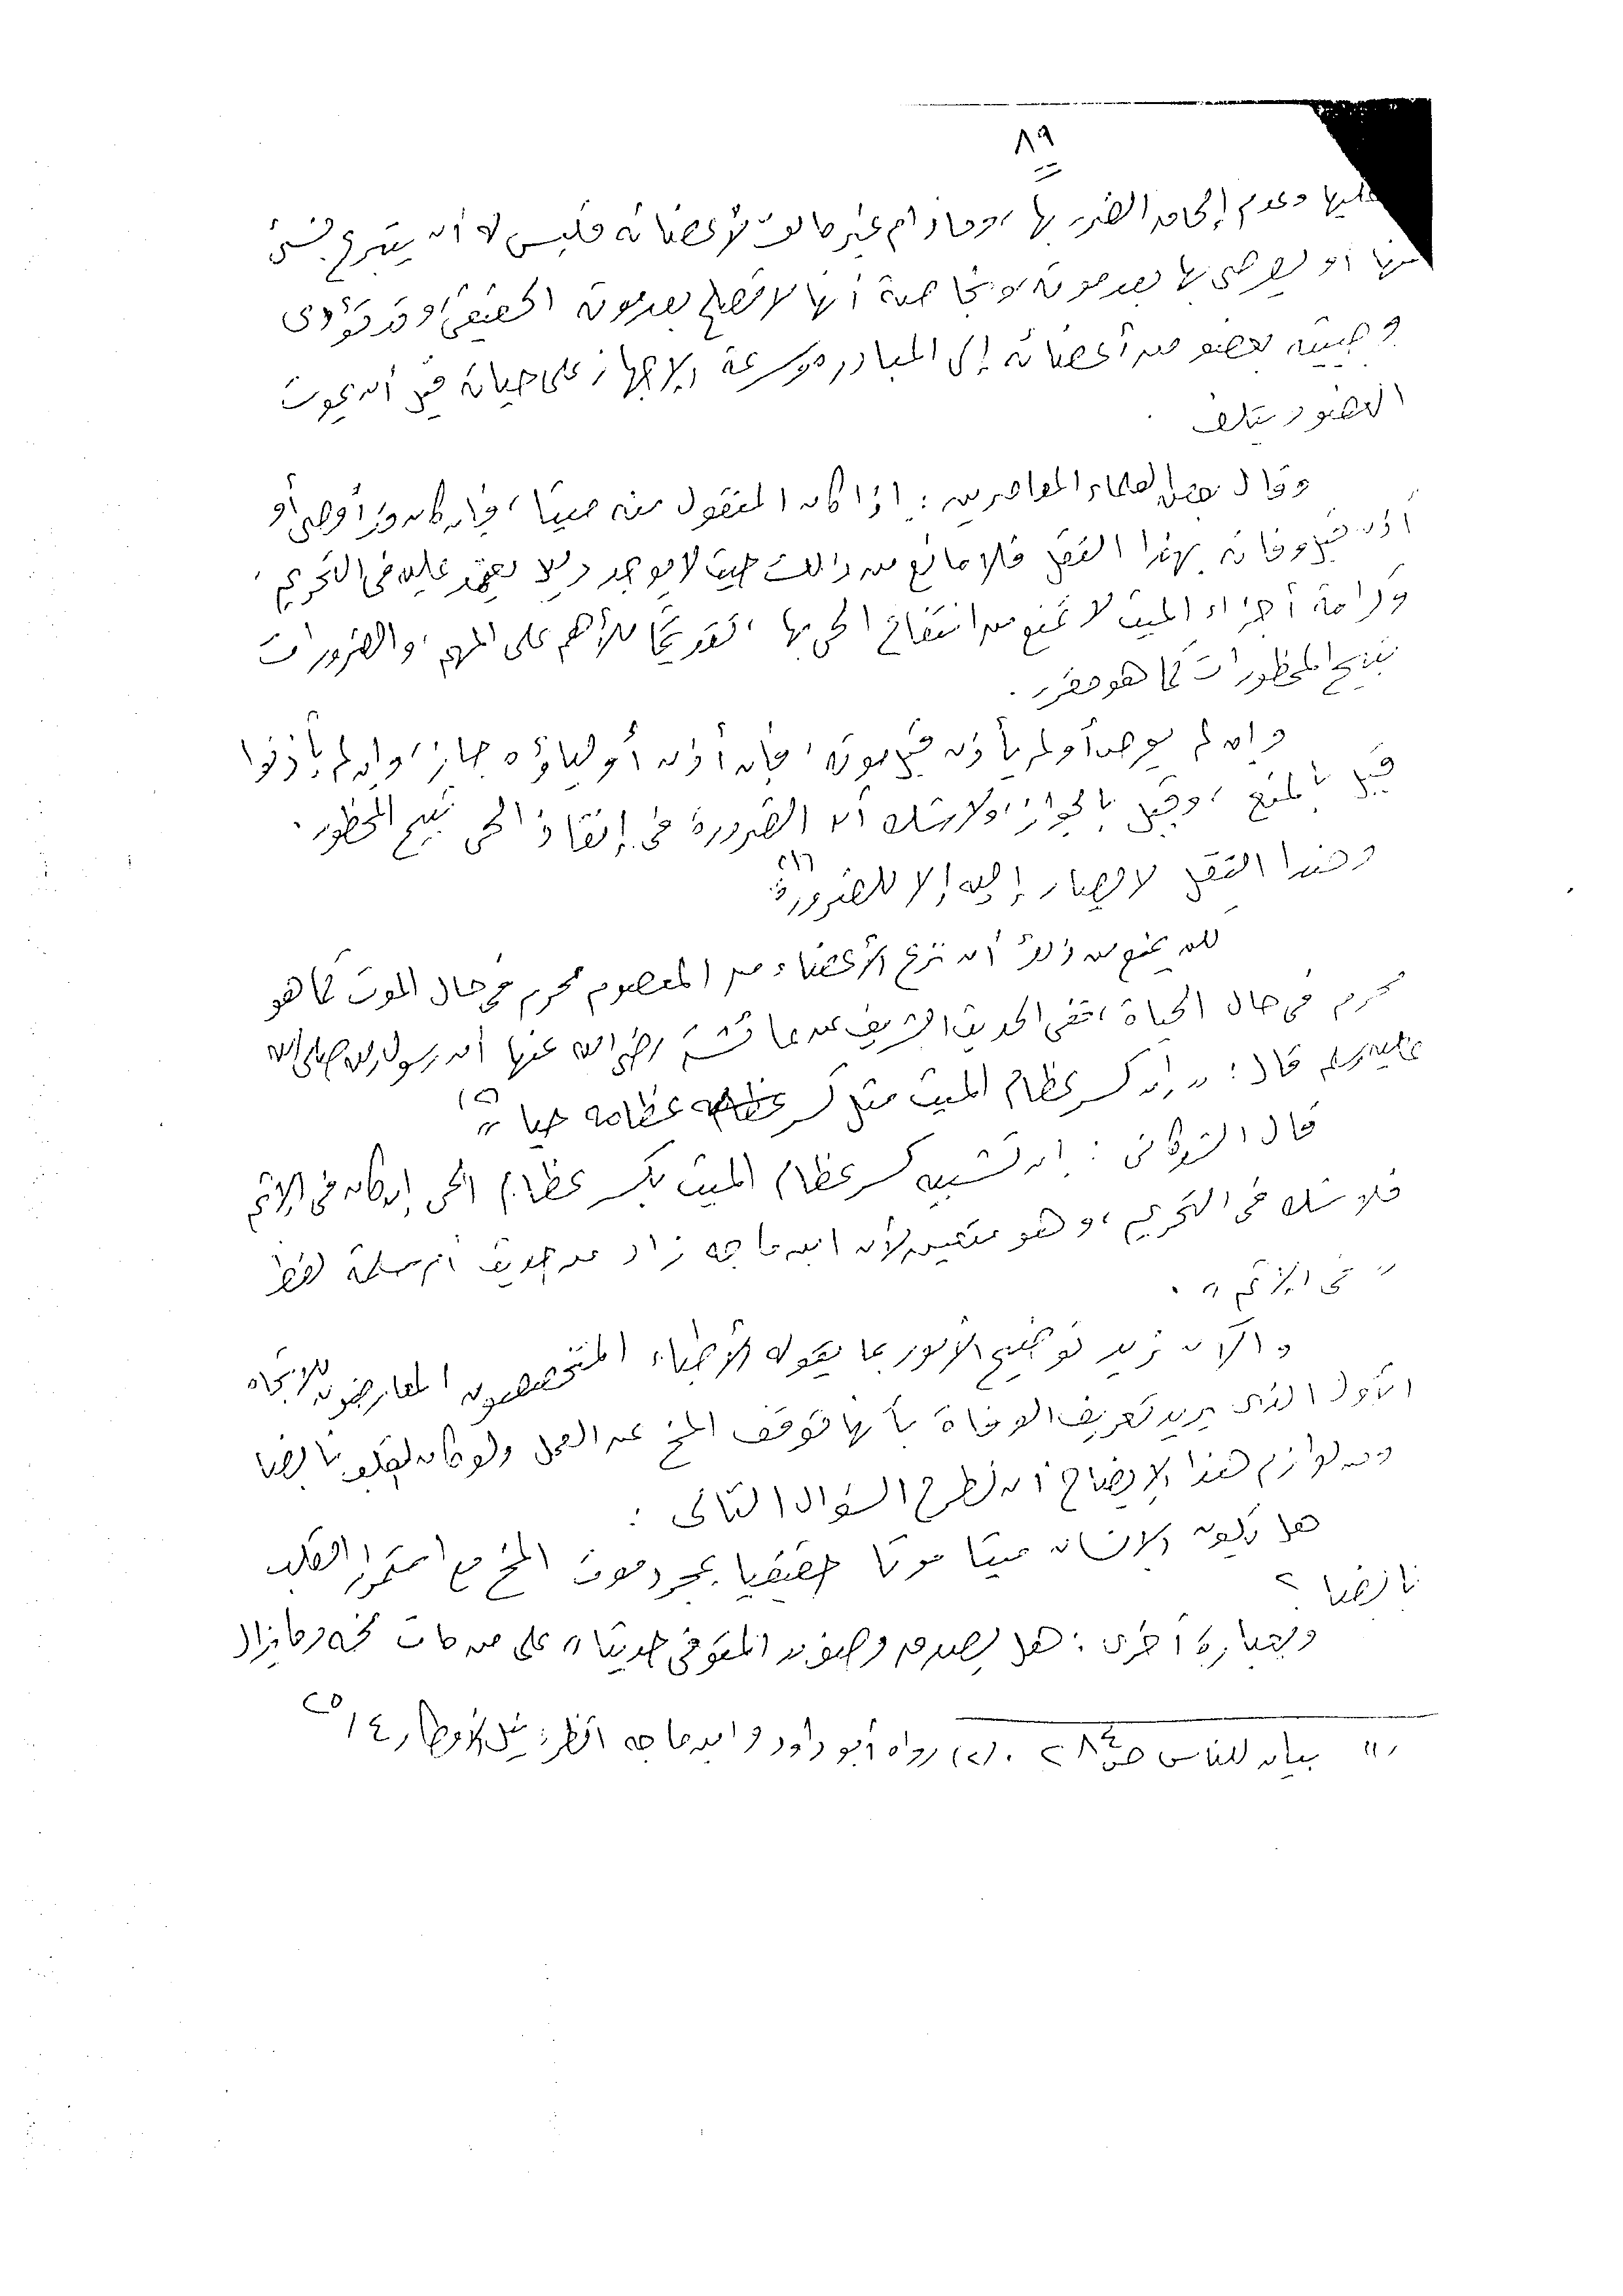 ٨٩
عليها وعدم إلحاق الضرر بها، وما دام غير مالك لأعضائه فليس له أن يتبرع بشئ
منها أو يوصى بها بعد موته، وبخاصة أنها لا تصلح بعد موته الحقيقى، وقد تؤدى
وصيته بعضو من أعضائه إلى المبادرة وسرعة الإجهاز على حياته قبل أن يموت
العضو ويتلف .
وقال بعض العلماء المعاصرين : إذا كان المنقول منه ميتا، فإن كان قد أوصى أو
أذن قبل وفاته بهذا النقل فلا مانع من ذلك حيث لا يوجد دليل يعتمد عليه فى التحريم،
وكرامة أجزاء الميت لا تمنع من انتفاع الحى بها، تقديمًا للأهم على المهم، والضرورات
تبيح المحظورات كما هو مقرر .
وإن لم يوص أو لم يأذن قبل موته، فإن أذن أولياؤه جاز، وإن لم يأذنوا
قيل بالمنع، وقيل بالجواز، ولا شك أن الضرورة فى إنقاذ الحى تبيح المحظور .
وهذا النقل لا يصار إليه إلا للضرورة (١)
لكن يمنع من ذلك أن نزع الأعضاء من المعصوم محرم فى حال الموت كما هو
محرم فى حال الحياة، ففى الحديث الشريف عن عائشة رضى الله عنها أن رسول الله صلى الله
عليه وسلم قال : " إن كسر عظام الميت مثل كسر عظامه حيا " (٢)
قال الشوكانى : إن تشبيه كسر عظام الميت بكسر عظام الحى إن كان فى الإثم
فلا شك فى التحريم، وهو متعين لأن ابن ماجه زاد من حديث أم سلمة لفظ
" فى الإثم " .
والآن نريد توضيح الأمور بما يقوله الأطباء المتخصصون المعارضون للاتجاه
الأول الذى يريد تعريف الوفاة بأنها توقف المخ عن العمل ولو كان القلب نابضا
ومن لوازم هذا الإيضاح أن نطرح السؤال التالى :
هل يكون الإنسان ميتا موتا حقيقيا بمجرد موت المخ مع استمرار القلب
نابضا ؟
وبعبارة أخرى : هل يصدق وصف " المتوفى حديثا " على من مات مخه وما يزال
(١) بيان للناس ص ٢٨٤ . (٢) رواه أبو داود وابن ماجه انظر : نيل الأوطار ٤ / ٢٥